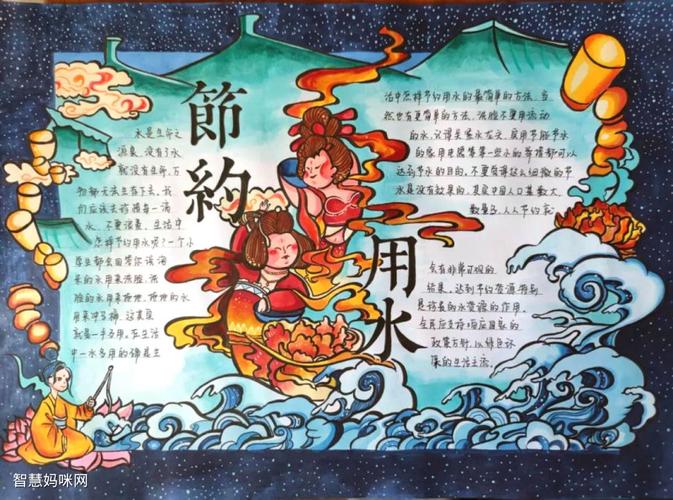 節約
用水
水是生命之
源泉，没有了水
就没有生命，万
物都无法生存下去，我
们应该去珍惜每一滴
水，不要浪费，生活中
怎样节约用水呢？一个小
来的水用来洗脸，洗
脸的水用来拖地，拖地的水
用来冲马桶，这真是
就是一手多用，在生活
中一水多用的确是生
活中怎样节约用水的最简单的方法，当
然也有更简单的方法，洗脸不要用流动
的水，只得关紧水龙头，家用节能节水
的家用电器等等一些小的举措都可以
达到节水的目的，不要觉得这么细微的节
水是没有效果的，其实中国人口基数大，
数量多，人人节约
会有非常可观的
结果，达到节约资源，特别
是淡水的水资源的作用，
全民应支持响应国家的
政策方针，以绿色环
保的生活主流。
智慧妈咪网